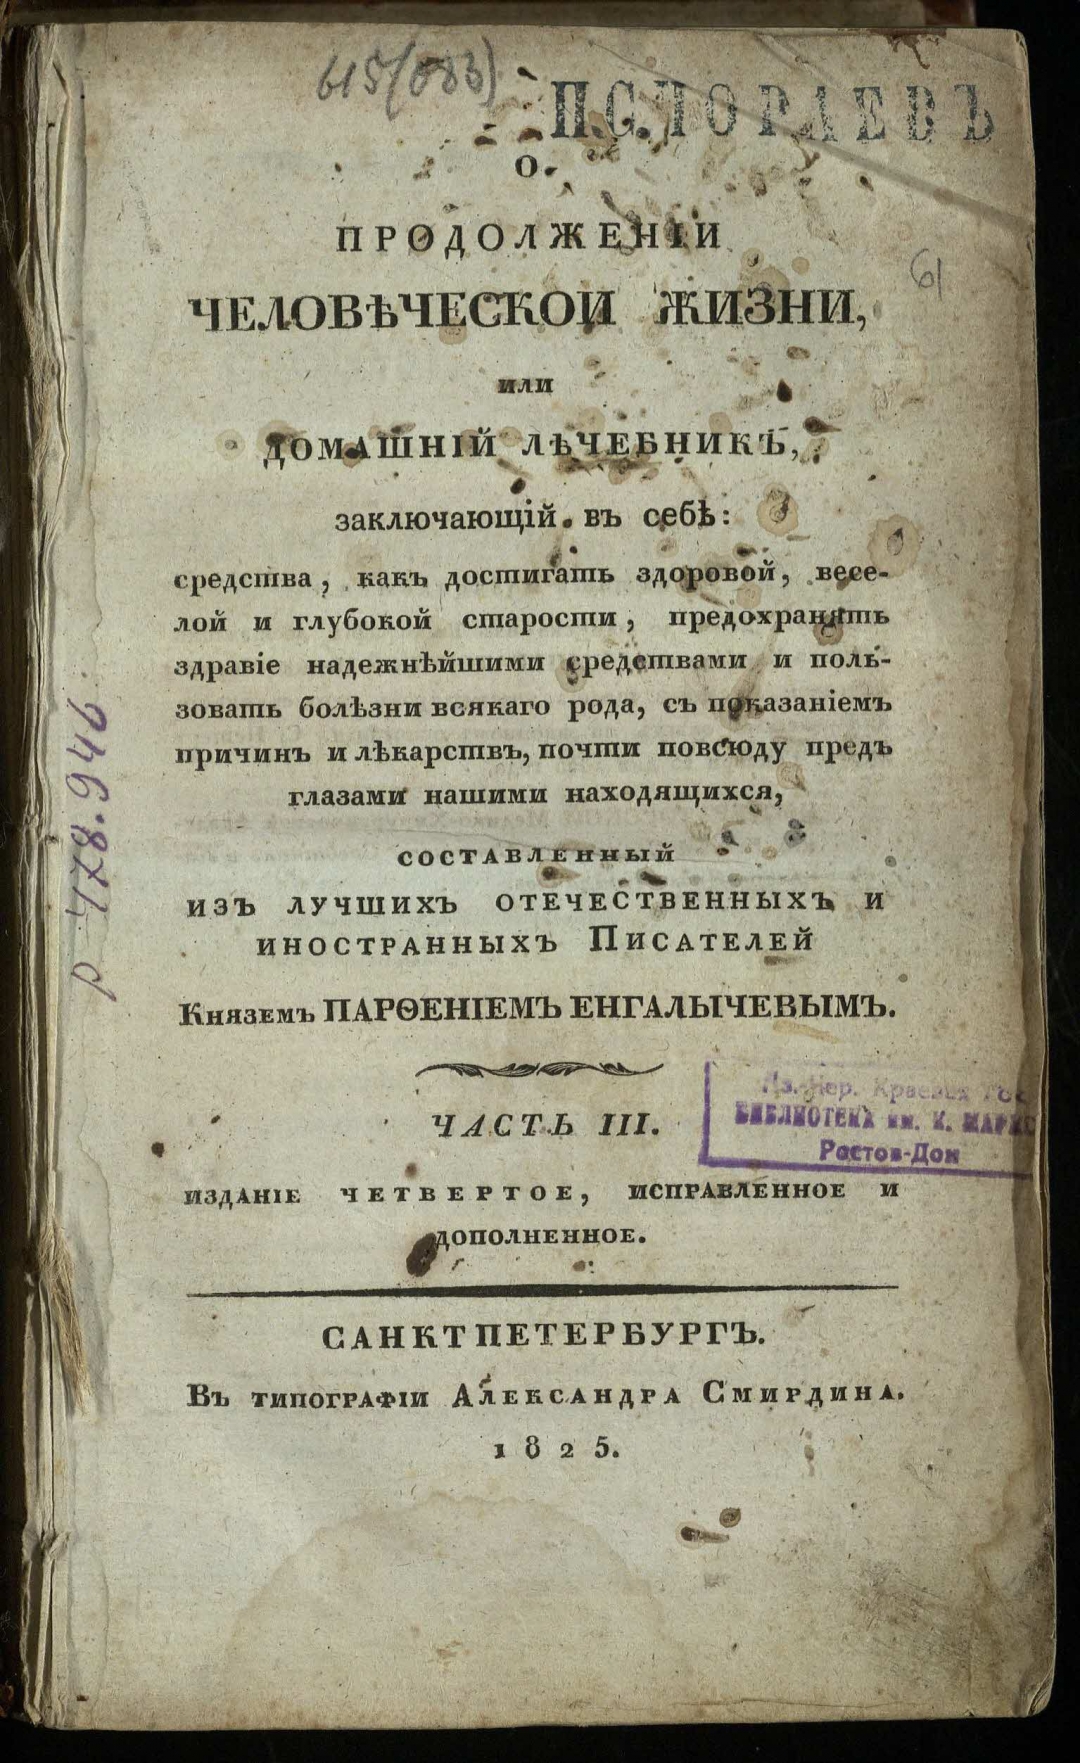 615(083)
О
ПРОДОЛЖЕНІИ
ЧЕЛОВѢЧЕСКОИ ЖИЗНИ,
61
или
ДОМАШНІЙ ЛѢЧЕБНИКЪ,
заключающій въ себѣ:
средства, какъ достигать здоровой, весе-
лой и глубокой старости, предохранять
здравіе надежнѣйшими средствами и поль-
зовать болѣзни всякаго рода, съ показаніемъ
причинъ и лѣкарствъ, почти повсюду предъ
глазами нашими находящихся,
СОСТАВЛЕННЫЙ
ИЗЪ ЛУЧШИХЪ ОТЕЧЕСТВЕННЫХЪ И
ИНОСТРАННЫХЪ ПИСАТЕЛЕЙ
Княземъ ПАРѲЕНІЕМЪ ЕНГАЛЫЧЕВЫМЪ.
ЧАСТЬ III.
БИБЛИОТЕКА им. К. МАРКС
Ростов-Дон
ИЗДАНІЕ ЧЕТВЕРТОЕ, ИСПРАВЛЕННОЕ И
ДОПОЛНЕННОЕ.
САНКТПЕТЕРБУРГЪ.
Въ типографіи Александра Смирдина.
1825.
р 478.946